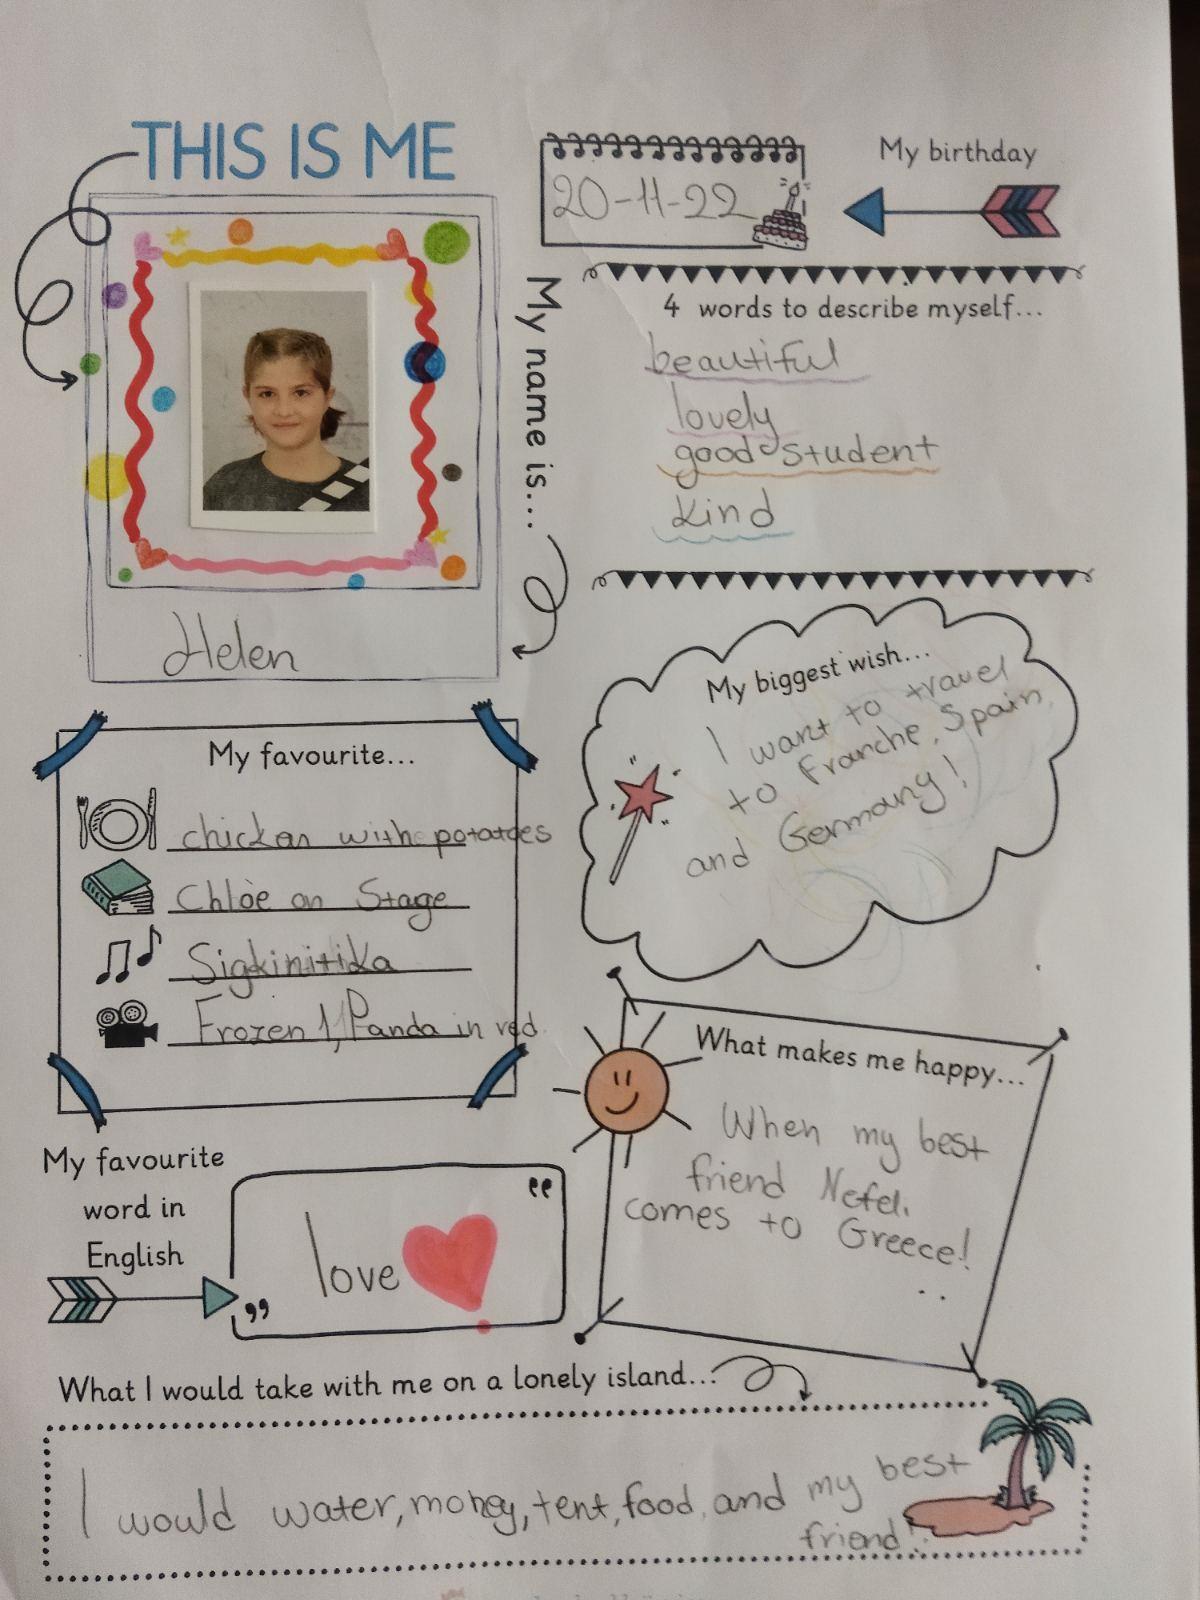 THIS IS ME
Helen
My name is...
20-11-22
My birthday
4 words to describe myself...
beautiful
lovely
good student
kind
My biggest wish...
I want to travel
to Franche, Spain,
and Germany!
My favourite...
chicken with potatoes
Chlòe on Stage
Sigkinitika
Frozen 1, Panda in red
What makes me happy...
When my best
friend Nefel.
comes to Greece!
My favourite
word in
English
love
What I would take with me on a lonely island...
I would water, money, tent, food, and my best
friend!